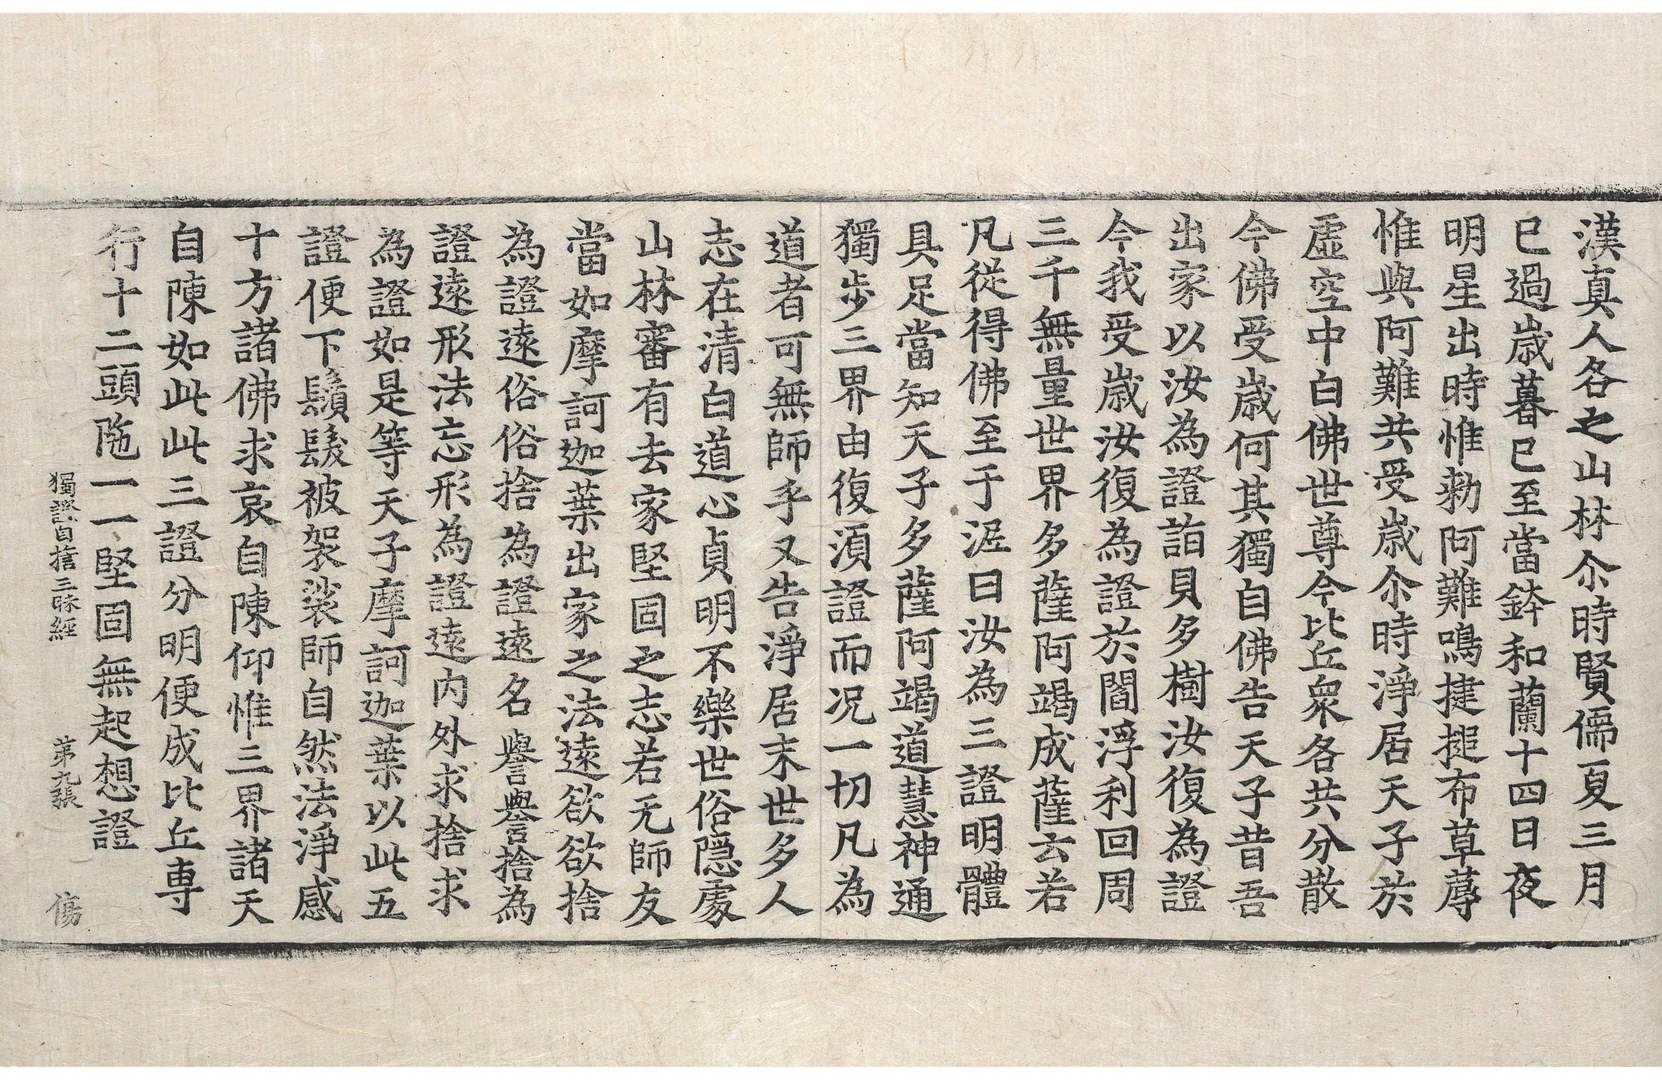 漢真人各之山林尒時賢儒夏三月
已過歲暮已至當鉢和蘭十四日夜
明星出時惟勑阿難鳴揵搥布草蓐
惟與阿難共受歲尒時淨居天子於
虛空中白佛世尊今比丘衆各共分散
今佛受歲何其獨自佛告天子昔吾
出家以汝為證詣貝多樹汝復為證
今我受歲汝復為證於閻浮利回周
三千無量世界多薩阿竭成薩云若
凡從得佛至于泥曰汝為三證明體
具足當知天子多薩阿竭道慧神通
獨步三界由復須證而况一切凡為
道者可無師乎又告淨居末世多人
志在清白道心貞明不樂世俗隱處
山林審有去家堅固之志若无師友
當如摩訶迦葉出家之法遠欲欲捨
為證遠俗俗捨為證遠名譽譽捨為
證遠形法忘形為證遠內外求捨求
為證如是等天子摩訶迦葉以此五
證便下鬚髮被袈裟師自然法淨感
十方諸佛求哀自陳仰惟三界諸天
自陳如此此三證分明便成比丘專
行十二頭陁一一堅固無起想證
獨證自捨三昧經 第九張 傷